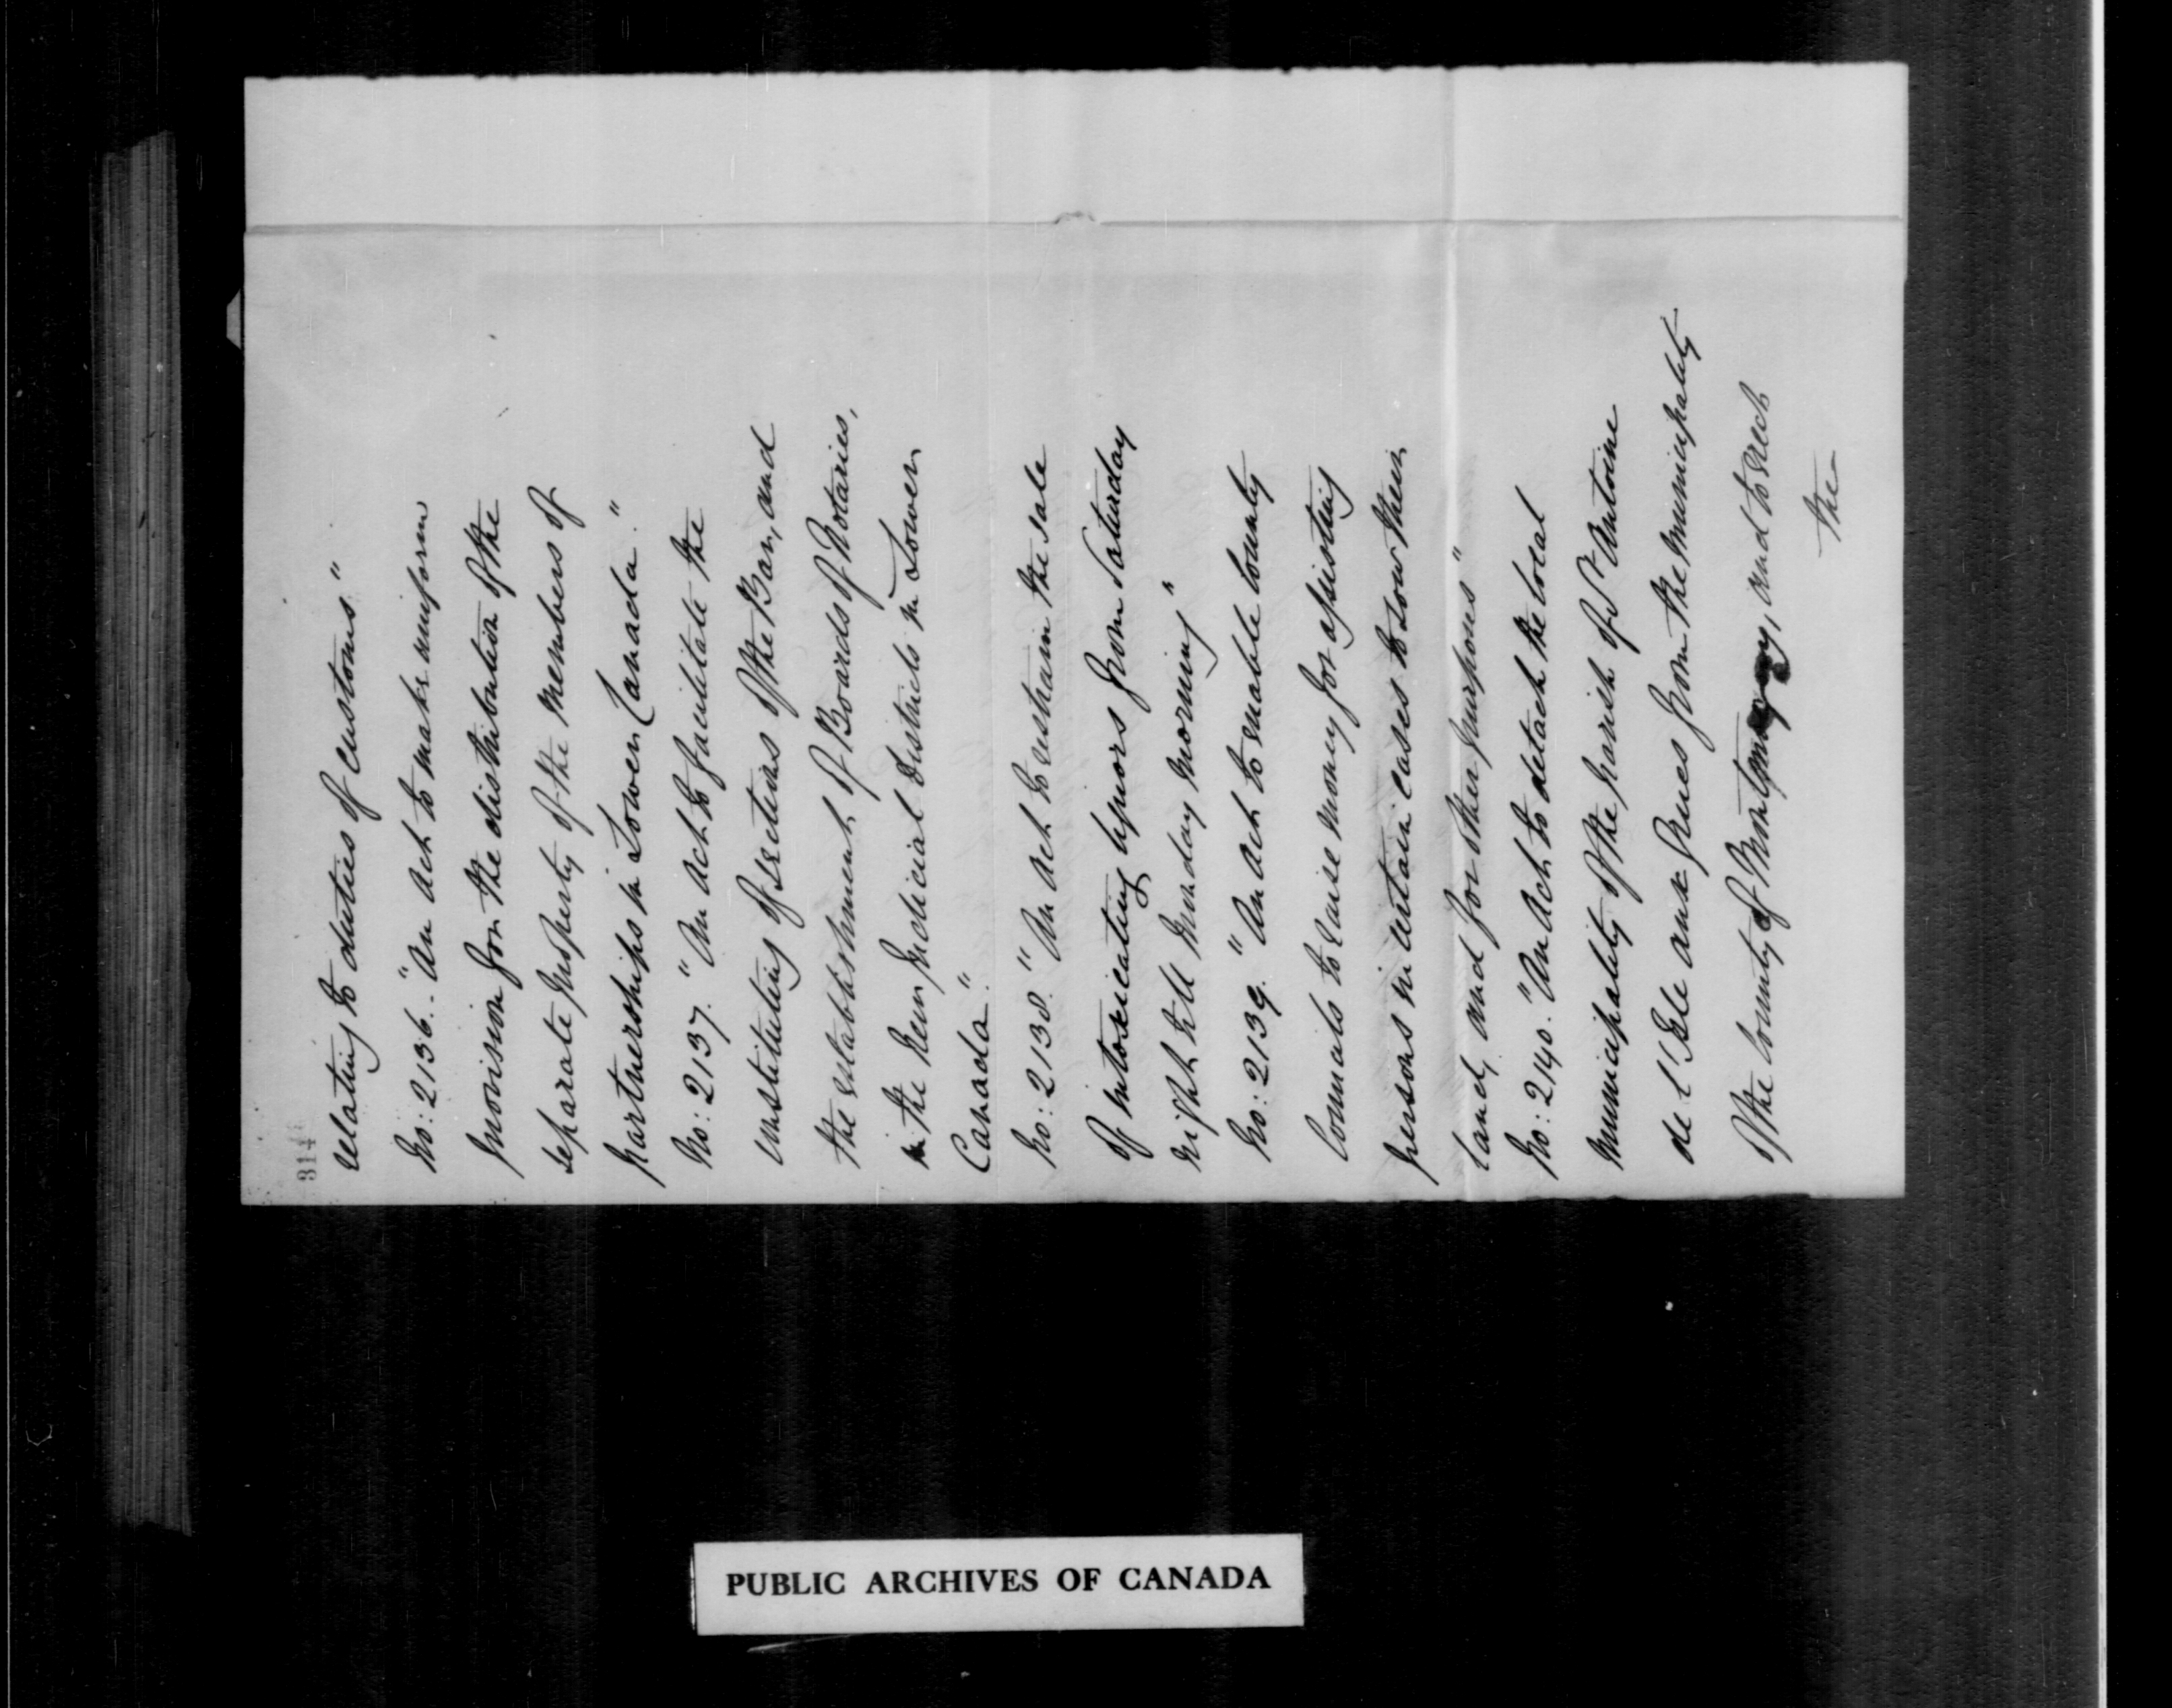 314
relating to duties of customs."
No: 2136. "An Act to make uniform
provision for the distribution of the
separate property of the members of
partnerships in Lower Canada."
No: 2137. "An Act to facilitate the
instituting of sections of the Bar, and
the establishment of Boards of Notaries,
in the new Judicial Districts in Lower
Canada."
No: 2138. "An Act to restrain the sale
of intoxicating liquors from Saturday
night till Monday morning"
No: 2139. "An Act to enable County
Councils to raise money for assisting
persons in certain cases to sow their
land, and for other purposes"
No: 2140. "An Act to detach the local
Municipality of the parish of St Antoine
de l'Isle aux Grues from the Municipality
of the County of Montmagny, and to erect
the
PUBLIC ARCHIVES OF CANADA